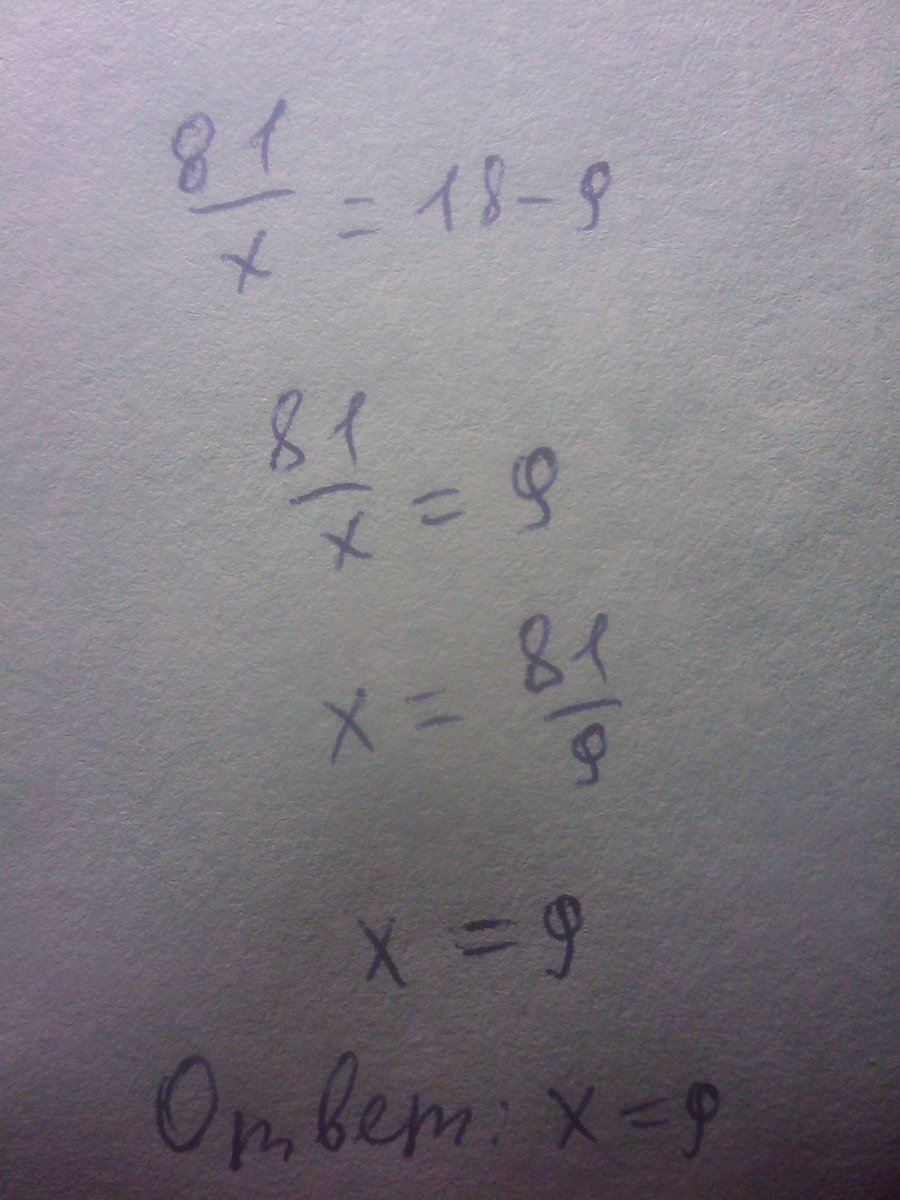 81/x = 18 - 9
81/x = 9
x = 81/9
x = 9
Ответ: x = 9